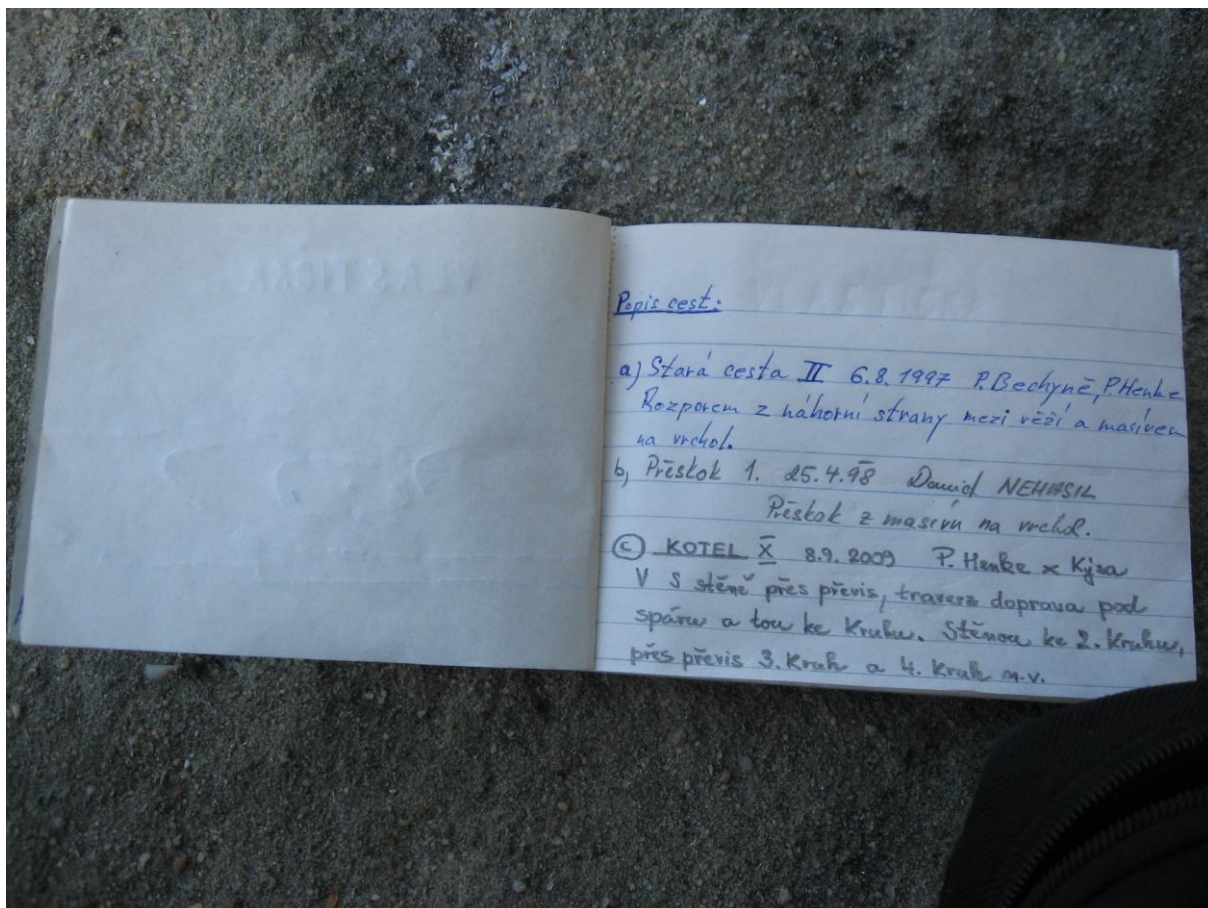 Popis cest:
a) Stará cesta II 6.8.1997 P. Bechyně, P. Henke
Rozporem z náhorní strany mezi věží a masívem
na vrchol.
b, Přeskok 1. 25.4.98 David NEHASIL
Přeskok z masívu na vrchol.
c KOTEL X 8.9.2009 P. Henke x Kýsa
V S stěně přes převis, traverz doprava pod
spáru a tou ke Kruhu. Stěnou ke 2. Kruhu,
přes převis 3. Kruh a 4. Kruh n.v.